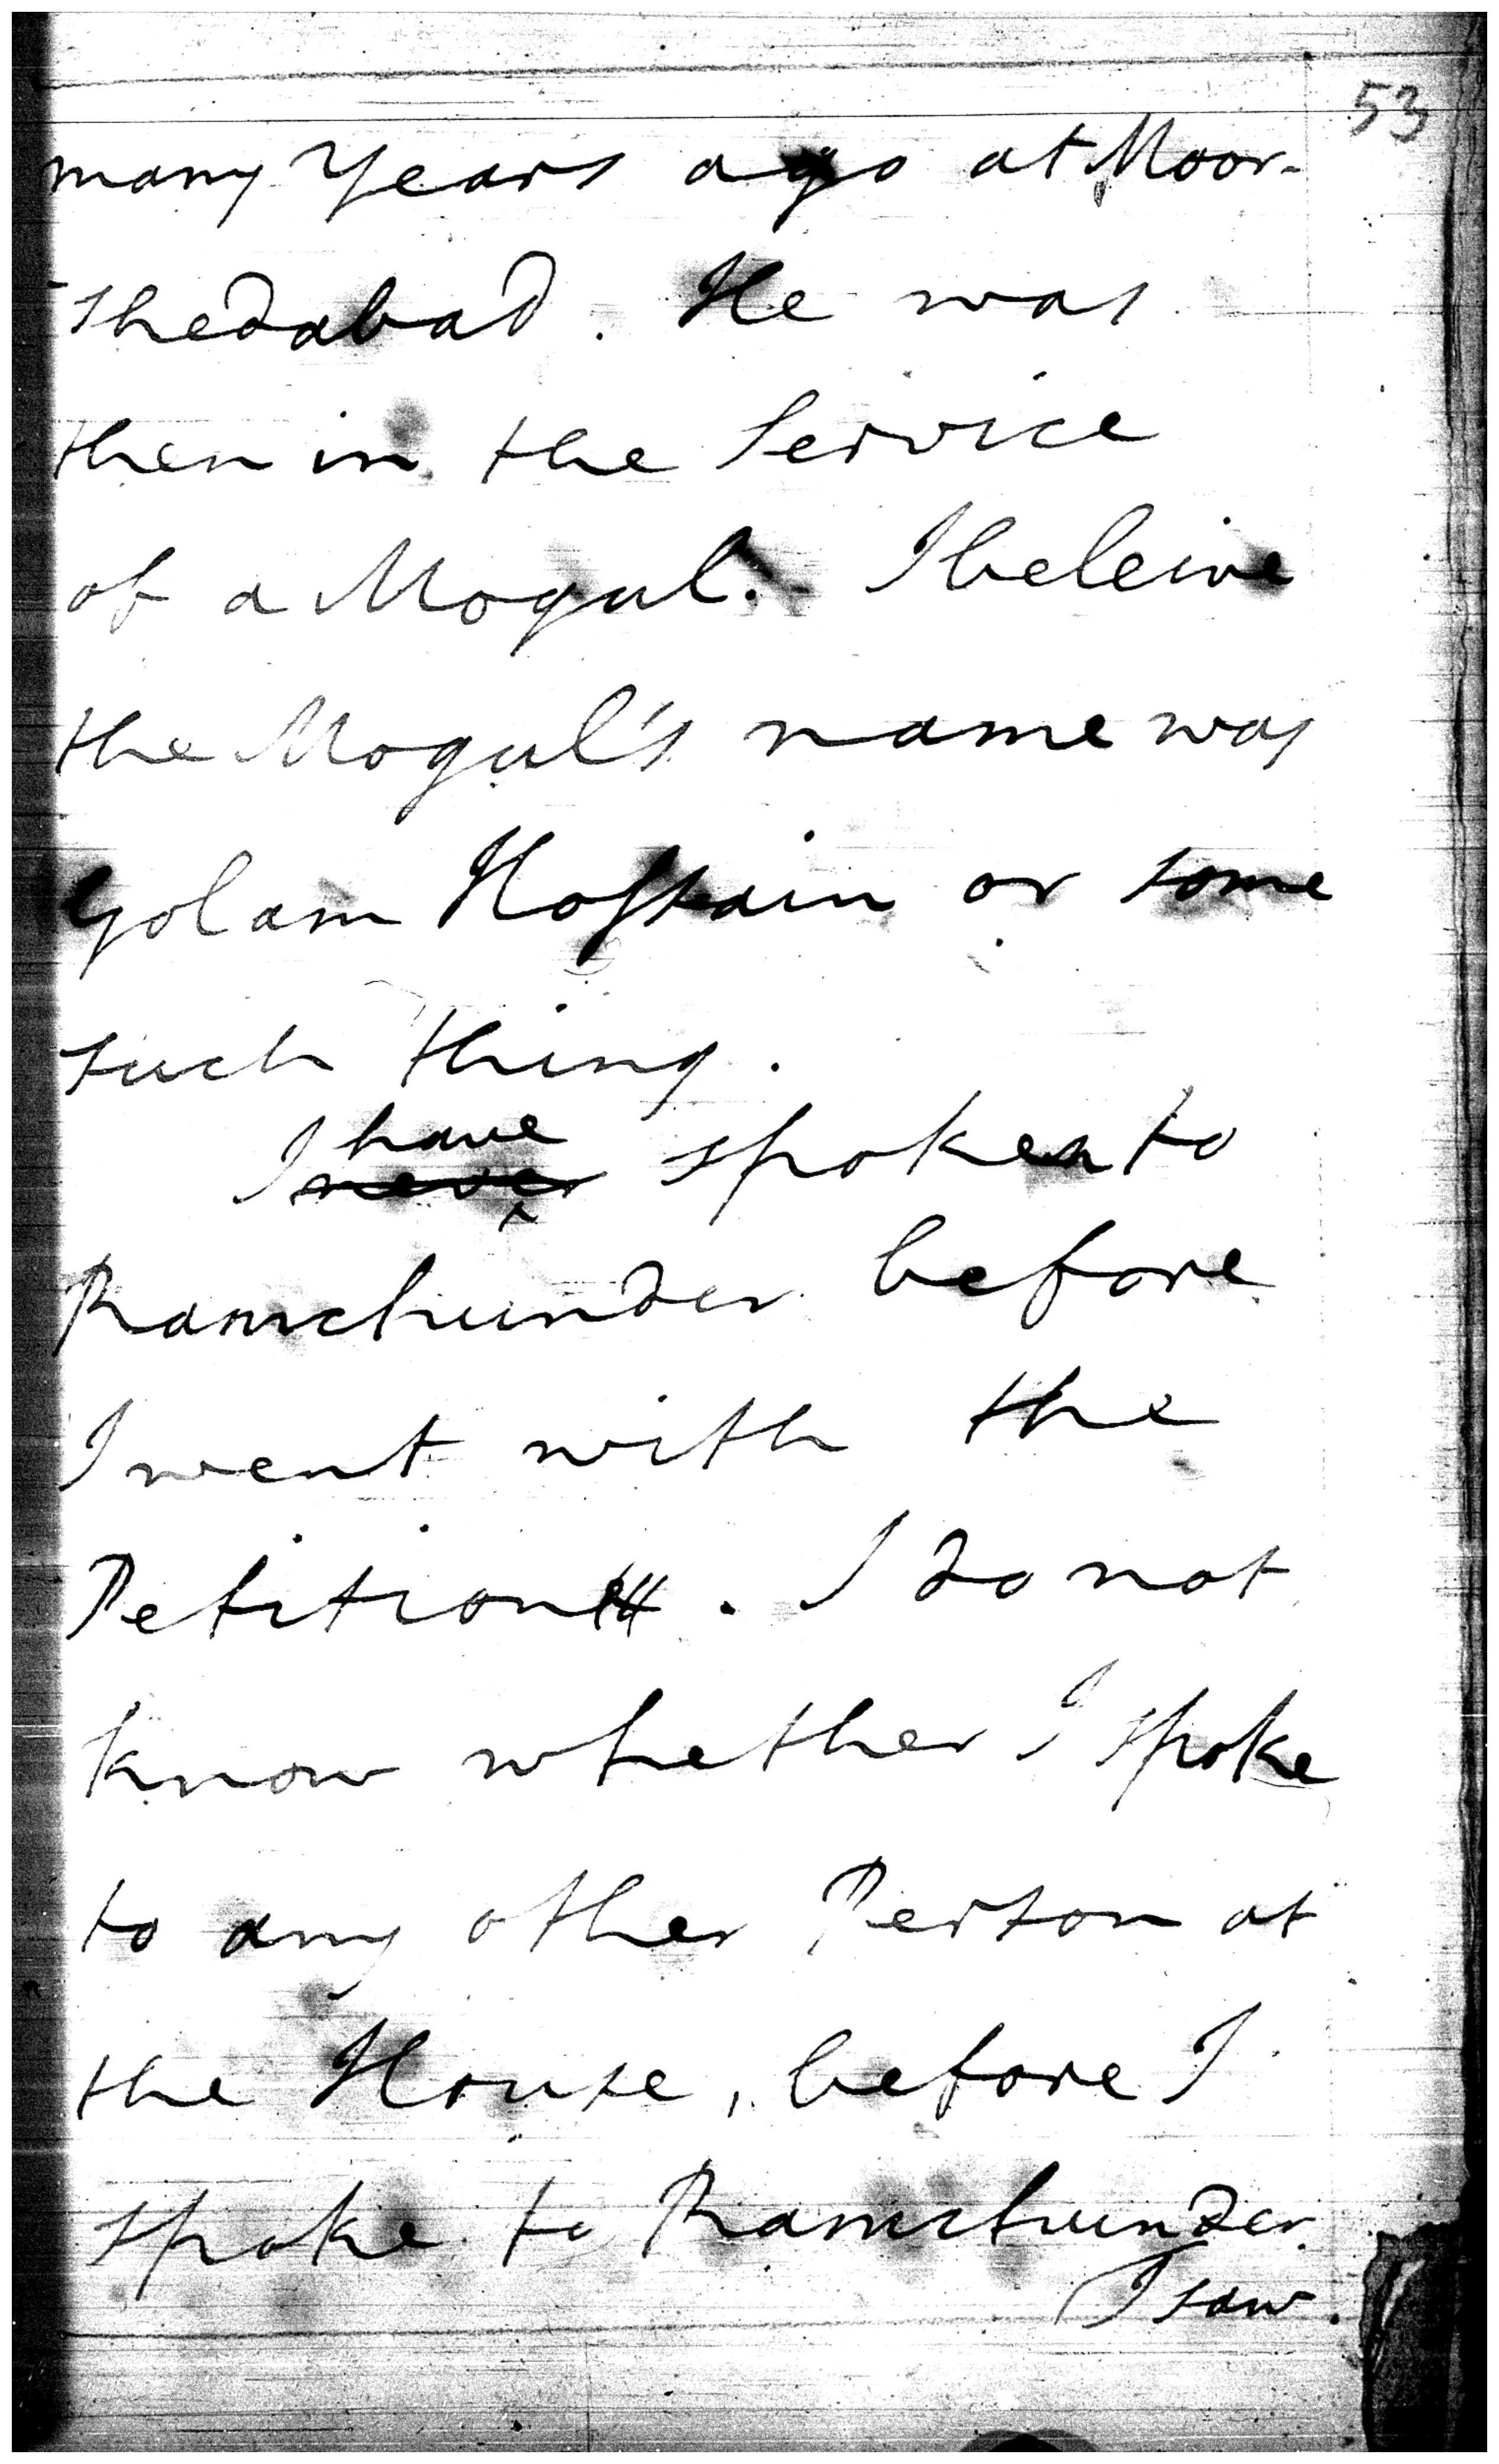 53
many Years ago at Moor-
-shedabad. He was
then in the Service
of a Mogul. I beleive
the Mogul's name was
Golam Hossain or some
such thing.
have
I never spoken to
Ramchunder before
I went with the
Petition. I do not
know whether I spoke
to any other Person at
the House, before I
spoke to Ramchunder
I saw.